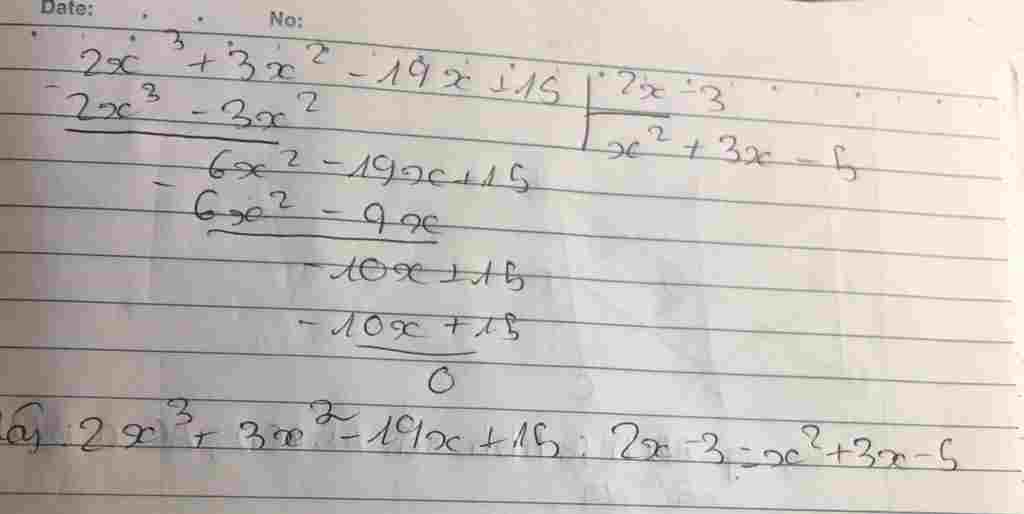 Date: No:
2x³ + 3x² - 19x + 15 | 2x - 3
- 2x³ - 3x² | x² + 3x - 5
6x² - 19x + 15
- 6x² - 9x
- 10x + 15
- 10x + 15
0
2x³ + 3x² - 19x + 15 : 2x - 3 = x² + 3x - 5